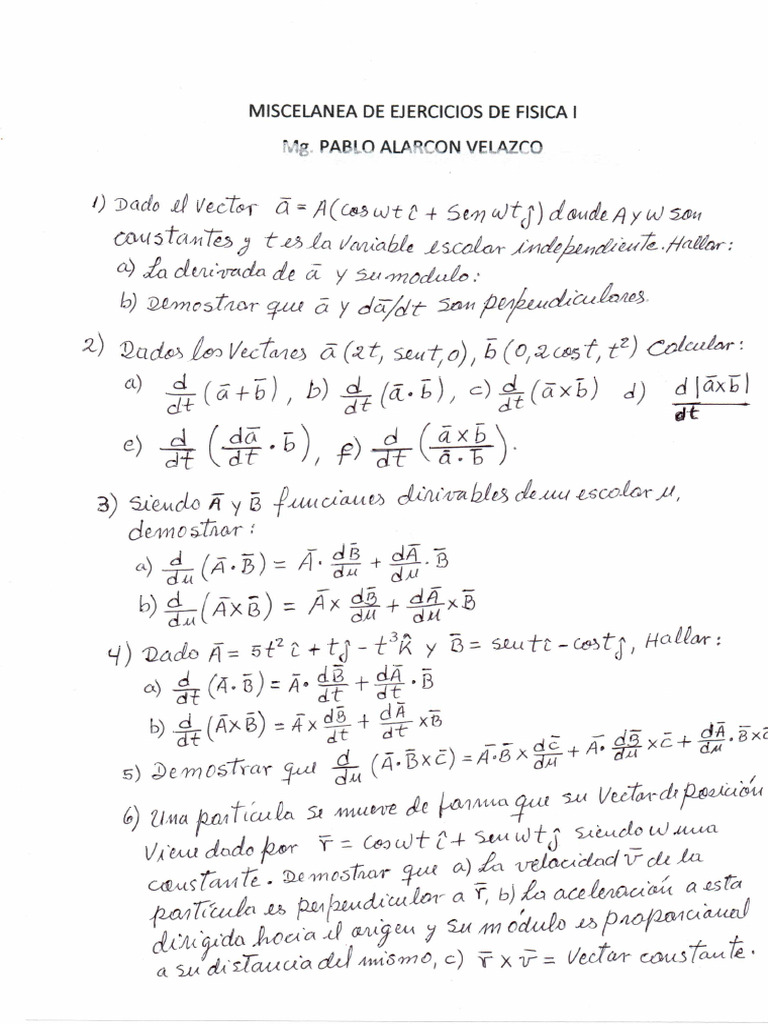 MISCELANEA DE EJERCICIOS DE FISICA I
Mg. PABLO ALARCON VELAZCO
1) Dado el vector ā = A(cos wt î + Sen wt ĵ) donde A y w son
constantes y t es la variable escolar independiente. Hallar:
a) La derivada de ā y su modulo:
b) Demostrar que ā y dā/dt son perpendiculares.
2) Dados los Vectores ā (2t, sent, 0), b̄ (0, 2cost, t²) Calcular:
a) d/dt (ā + b̄), b) d/dt (ā · b̄), c) d/dt (ā × b̄) d) d|ā×b̄|/dt
e) d/dt (dā/dt · b̄), f) d/dt (ā × b̄ / ā · b̄).
3) Siendo Ā y B̄ funciones dirivables de un escolar μ,
demostrar:
a) d/dμ (Ā · B̄) = Ā · dB̄/dμ + dĀ/dμ · B̄
b) d/dμ (Ā × B̄) = Ā × dB̄/dμ + dĀ/dμ × B̄
4) Dado Ā = 5t² î + tĵ - t³ k̂ y B̄ = sent î - cost ĵ, Hallar:
a) d/dt (Ā · B̄) = Ā · dB̄/dt + dĀ/dt · B̄
b) d/dt (Ā × B̄) = Ā × dB̄/dt + dĀ/dt × B̄
5) Demostrar que d/dμ (Ā · B̄ × c̄) = Ā · B̄ × dc̄/dμ + Ā · dB̄/dμ × c̄ + dĀ/dμ · B̄ × c̄
6) Una partícula se mueve de forma que su Vector de posición
Viene dado por r̄ = cos wt î + sen wt ĵ siendo w una
constante. Demostrar que a) La velocidad v̄ de la
partícula es perpendicular a r̄, b) La aceleración a esta
dirigida hacia el origen y su módulo es proporcional
a su distancia del mismo, c) r̄ × v̄ = Vector constante.